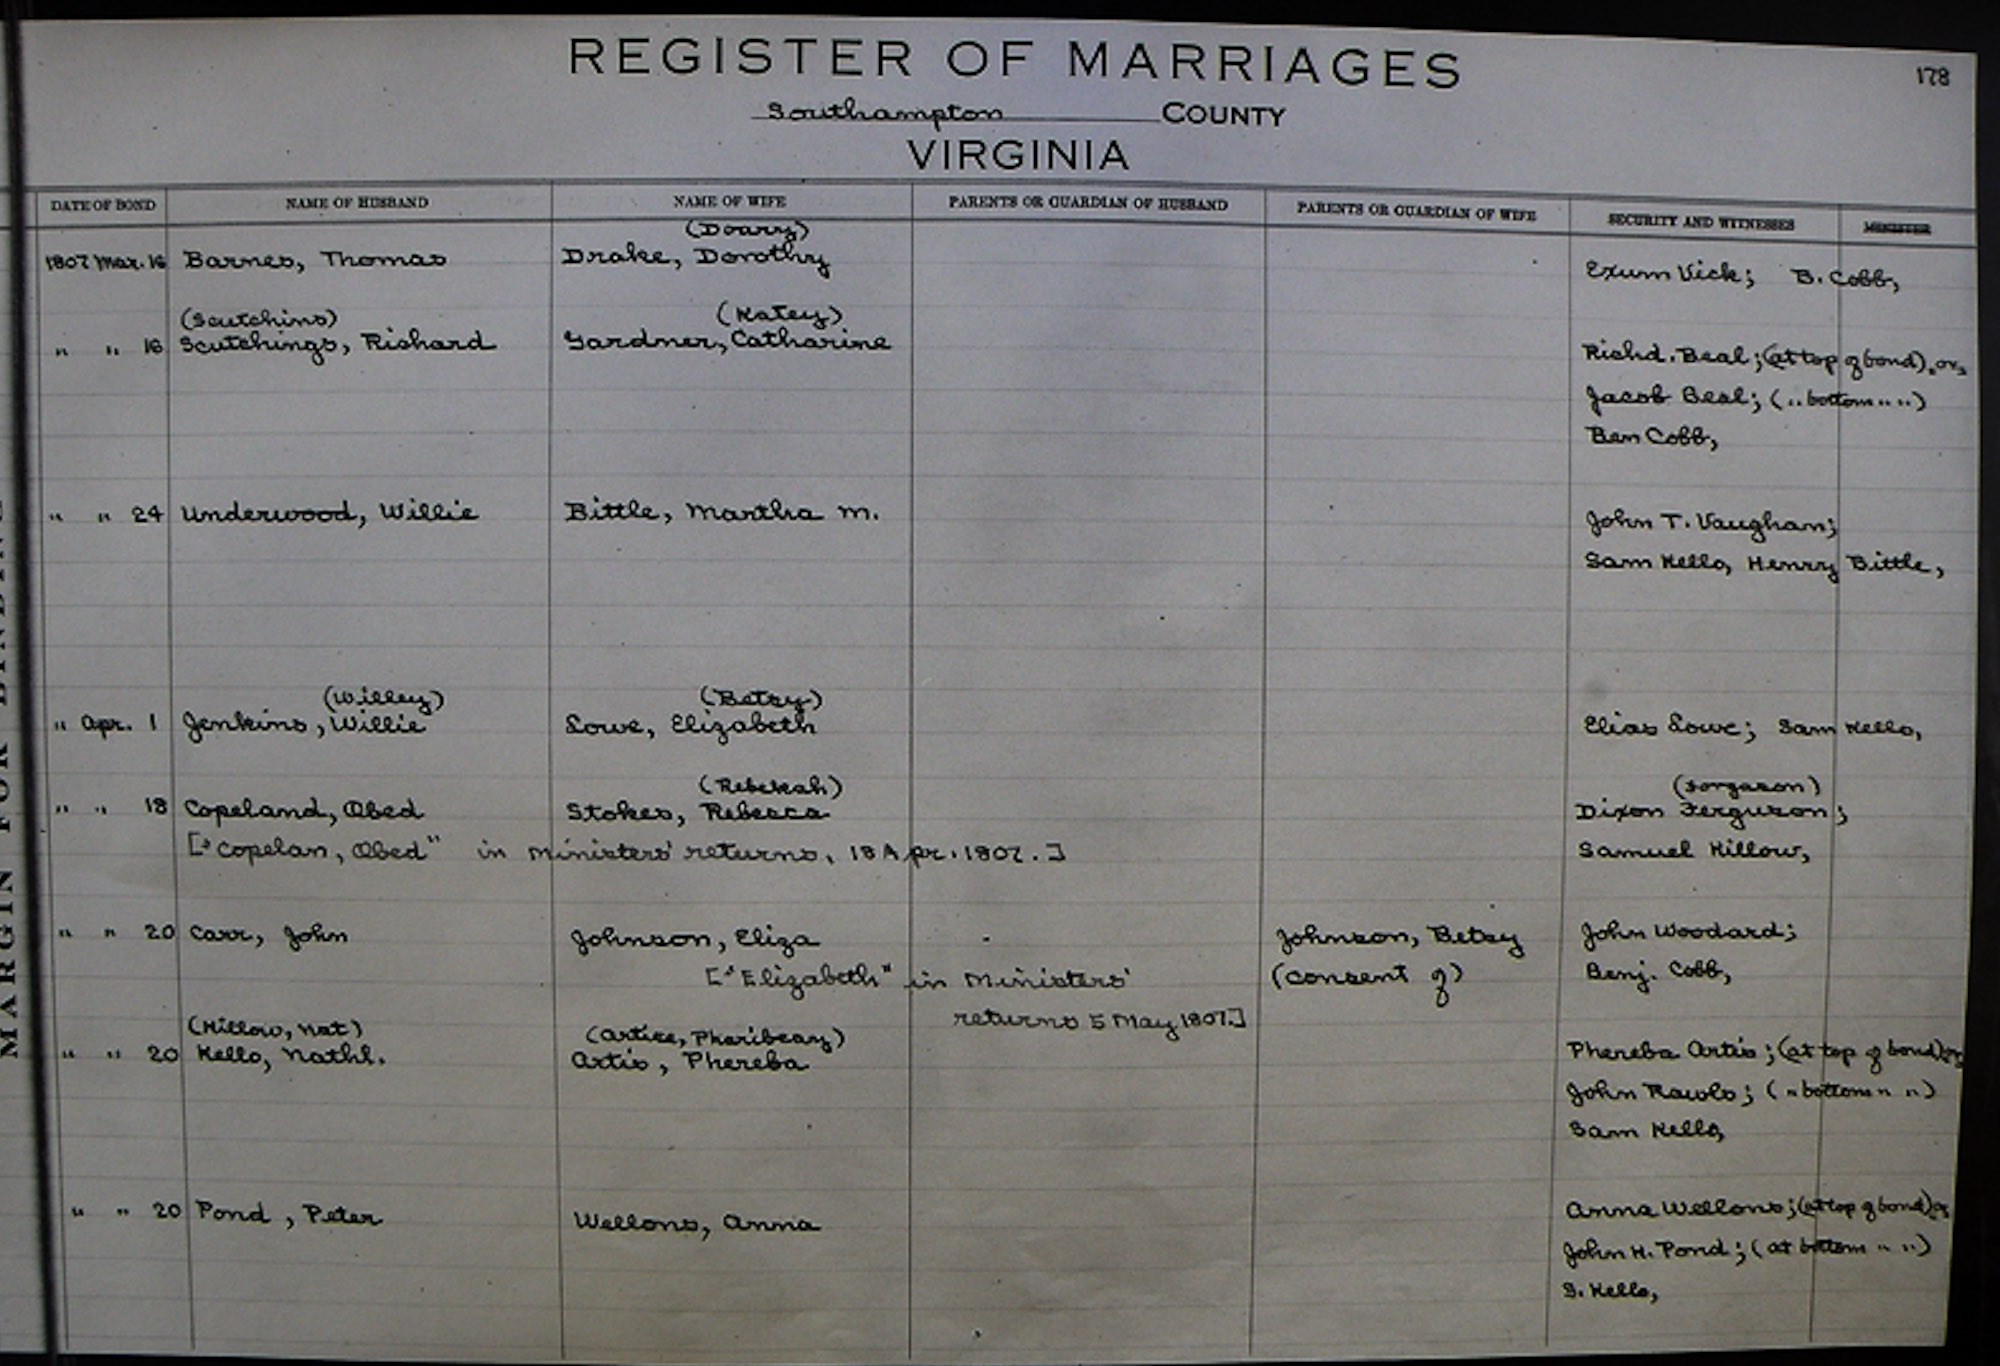 REGISTER OF MARRIAGES
178
Southampton COUNTY
VIRGINIA
DATE OF BOND NAME OF HUSBAND NAME OF WIFE PARENTS OR GUARDIAN OF HUSBAND PARENTS OR GUARDIAN OF WIFE SECURITY AND WITNESSES MINISTER
(Doary)
1807 Mar. 16 Barnes, Thomas Drake, Dorothy Exum Vick; B. Cobb,
(Scutchins) (Katey)
" " 16 Scutchings, Richard Gardner, Catharine Richd. Beal; (at top of bond), or,
Jacob Beal; ( " bottom " " )
Ben Cobb,
" " 24 Underwood, Willie Bittle, Martha M. John T. Vaughan;
Sam Kello, Henry Bittle,
(Willey) (Betsy)
" Apr. 1 Jenkins, Willie Lowe, Elizabeth Elias Lowe; Sam Kello,
(Rebekah) (Forgason)
" " 18 Copeland, Obed Stokes, Rebecca Dixon Ferguson;
["Copelan, Obed" in Ministers' returns, 18 Apr. 1807.] Samuel Killow,
" " 20 Carr, John Johnson, Eliza Johnson, Betsy John Woodard;
["Elizabeth" in Ministers' (consent of) Benj. Cobb,
returns 5 May 1807.]
(Killow, Nat) (Artice, Pharibeay)
" " 20 Kello, Nathl. Artis, Phereba Phereba Artis; (at top of bond) or
John Rawls; ( " bottom " " )
Sam Kello,
" " 20 Pond, Peter Wellons, Anna Anna Wellons; (at top of bond) or
John H. Pond; (at bottom " " )
S. Kello,
MARGIN FOR BINDING